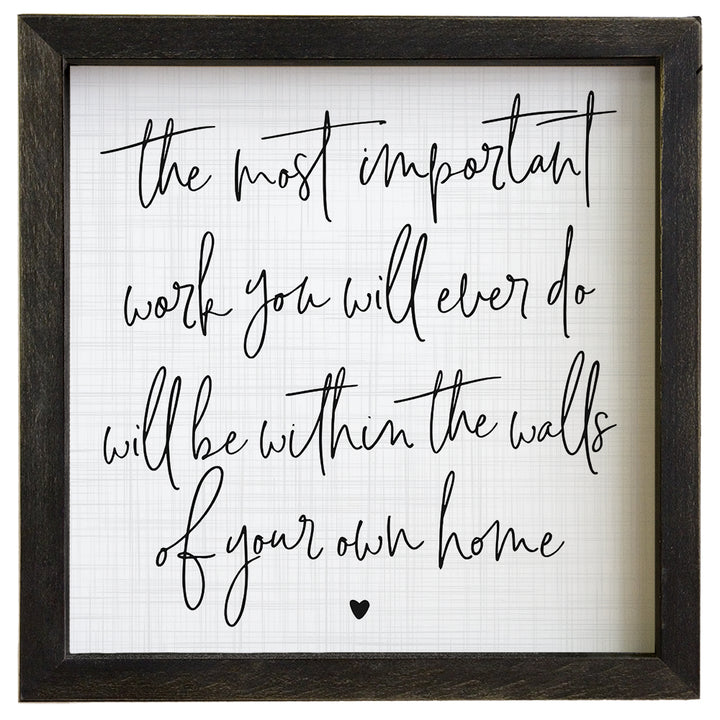 the most important
work you will ever do
will be within the walls
of your own home